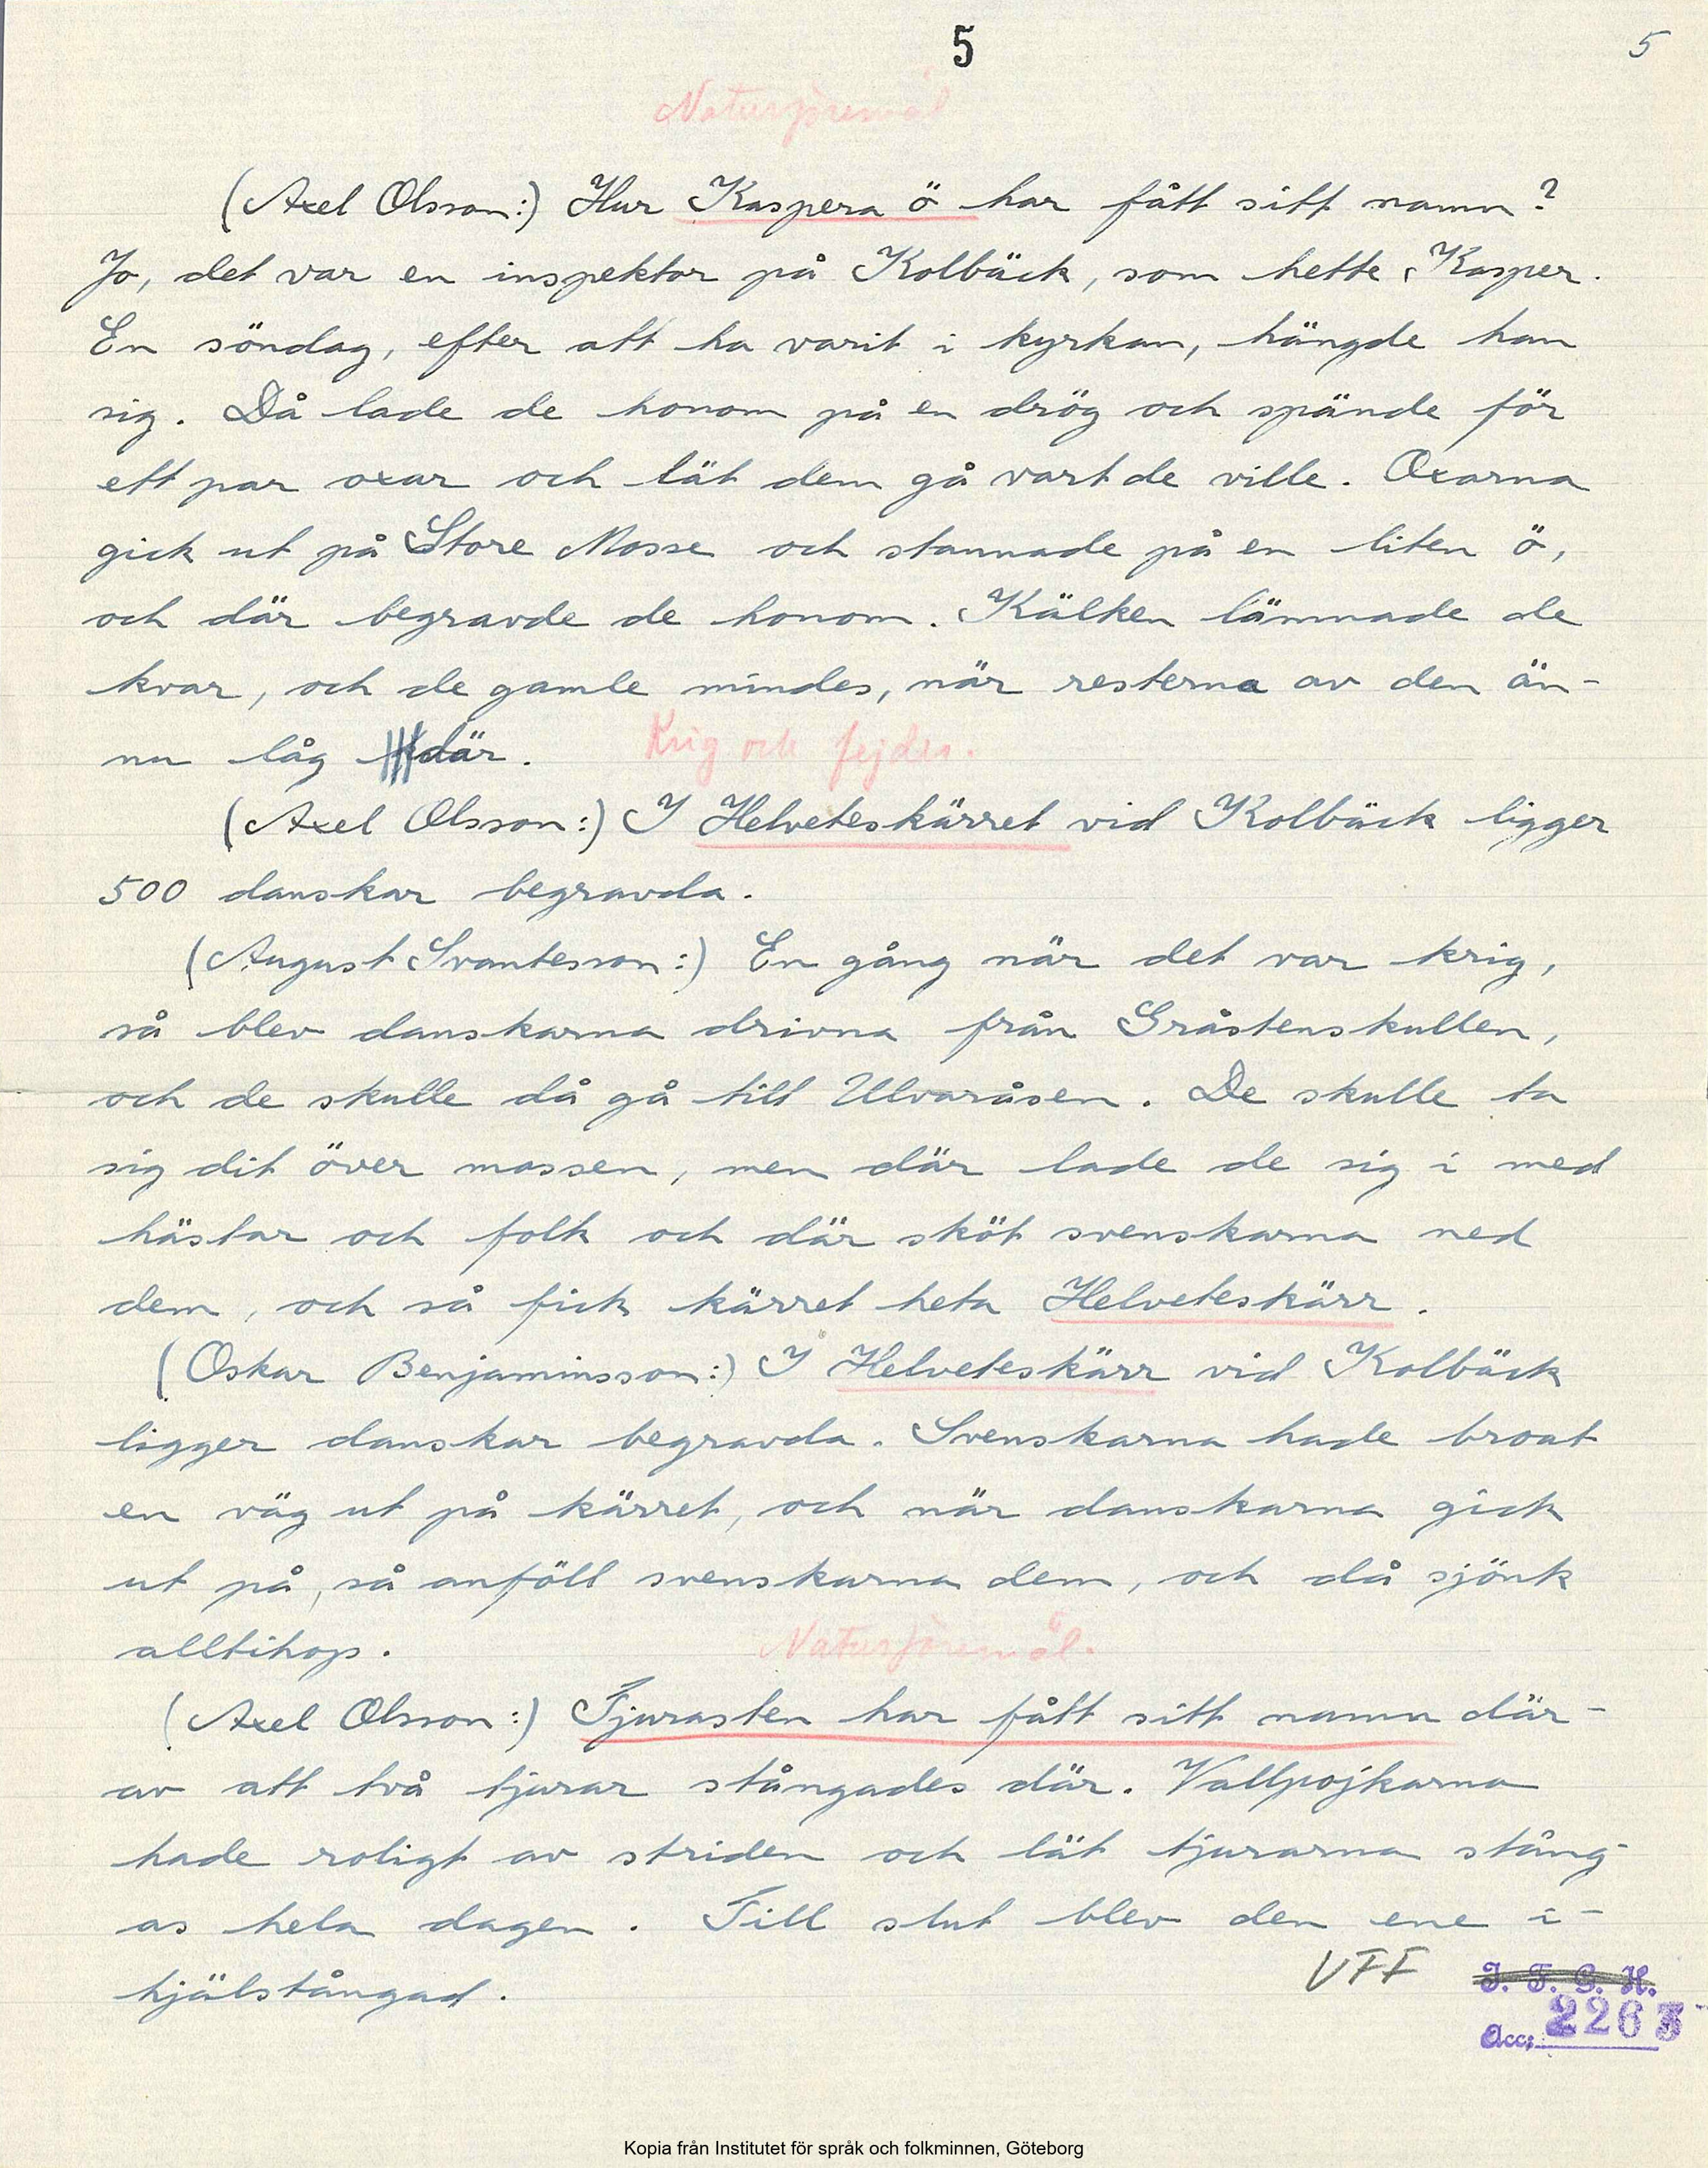 5
5
Naturföremål
(Axel Olsson:) Hur Kaspera ö har fått sitt namn?
Jo, det var en inspektor på Kolbäck, som hette Kasper.
En söndag, efter att ha varit i kyrkan, hängde han
sig. Då lade de honom på en drög och spände för
ett par oxar och lät dem gå vart de ville. Oxarna
gick ut på Store Mosse och stannade på en liten ö,
och där begravde de honom. Kälken lämnade de
kvar, och de gamle mindes, när resterna av den än-
nu låg där.
Krig och fejder.
(Axel Olsson:) I Helveteskärret vid Kolbäck ligger
500 danskar begravda.
(August Svantesson:) En gång när det var krig,
så blev danskarna drivna från Gråstenskullen,
och de skulle då gå till Ulvaråsen. De skulle ta
sig dit över mossen, men där lade de sig i med
hästar och folk och där sköt svenskarna ned
dem, och så fick kärret heta Helveteskärr.
(Oskar Benjaminsson:) I Helveteskärr vid Kolbäck
ligger danskar begravda. Svenskarna hade broat
en väg ut på kärret, och när danskarna gick
ut på, så anföll svenskarna dem, och då sjönk
alltihop.
Naturföremål.
(Axel Olsson:) Tjurasten har fått sitt namn där-
av att två tjurar stångades där. Vallpojkarna
hade roligt av striden och lät tjurarna stång-
as hela dagen. Till slut blev den ene i-
hjälstångad.
VFF
I. F. G. H.
Acc. 2263
Kopia från Institutet för språk och folkminnen, Göteborg